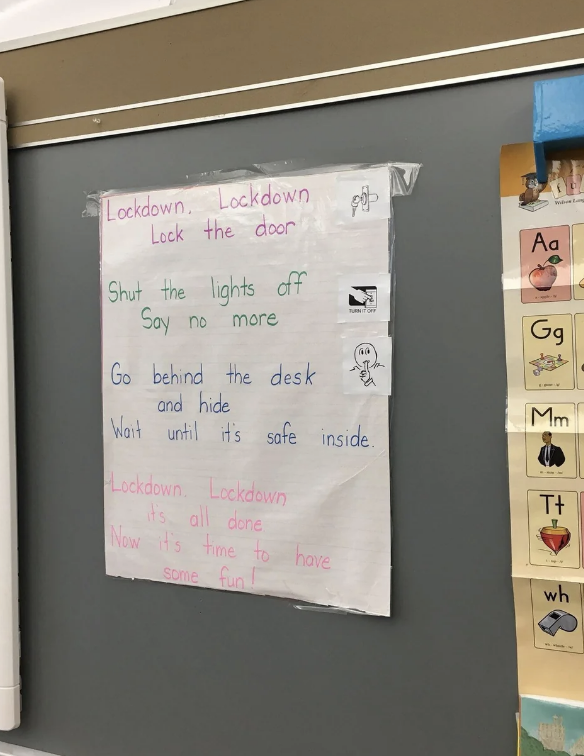 Lockdown, Lockdown
Lock the door
Shut the lights off
Say no more
TURN IT OFF
Go behind the desk
and hide
Wait until it's safe inside.
Lockdown, Lockdown
it's all done
Now it's time to have
some fun!
Aa
Gg
Mm
Tt
wh